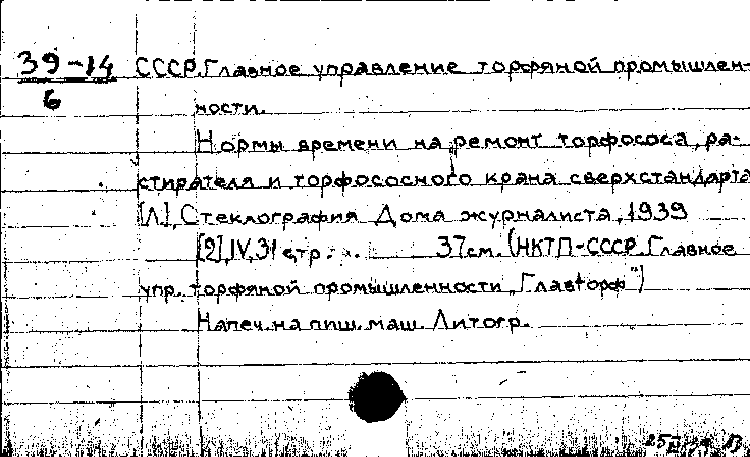 39-14 СССР. Главное управление торфяной промышлен-
6
ности.
Нормы времени на ремонт торфососа, ра-
стирателя и торфососного крана сверхстандарта
[Л], Стеклография Дома журналиста, 1939
[2], IV, 31 стр. 37см. (НКТП-СССР. Главное
упр. торфяной промышленности „Главторф")
Напеч. на пиш. маш. Литогр.